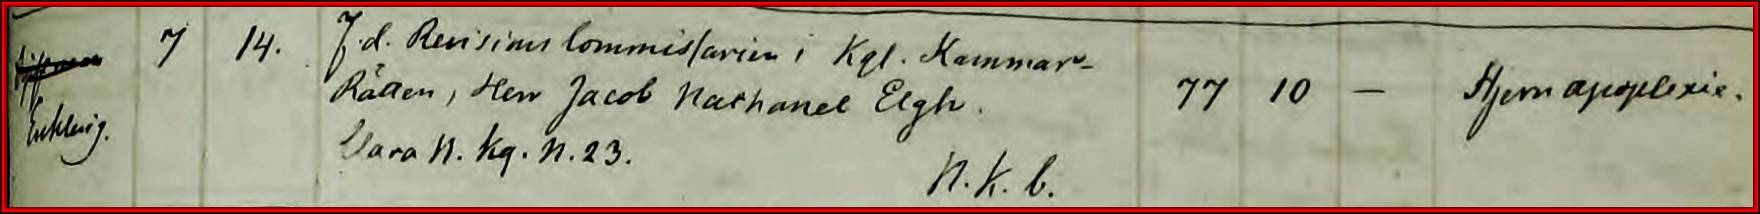 Enkling.
7 14. F.d. Revisions Commissarien i Kgl. Kammar-
Rätten, Herr Jacob Nathanel Elgh. 77 10 — Hjernapoplexie.
Vara N. Kg. N. 23.
N. K. b.